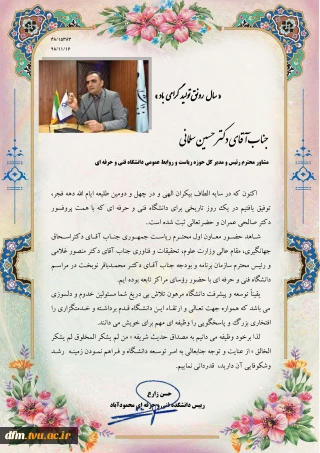 ۳۸/۱۵۳۸۳
۹۸/۱۱/۱۶
« سال رونق تولید گرامی باد »
جناب آقای دکتر حسین سلمانی
مشاور محترم رئیس و مدیر کل حوزه ریاست و روابط عمومی دانشگاه فنی و حرفه ای
اکنون که در سایه الطاف بیکران الهی و در چهل و دومین طلیعه ایام الله دهه فجر،
توفیق یافتیم در یک روز تاریخی برای دانشگاه فنی و حرفه ای که با همت پروفسور
دکتر صالحی عمران و حضرتعالی ثبت شده است.
شاهد حضور معاون اول محترم ریاست جمهوری جناب آقای دکتر اسحاق
جهانگیری، مقام عالی وزارت علوم، تحقیقات و فناوری جناب آقای دکتر منصور غلامی
و رئیس محترم سازمان برنامه و بودجه جناب آقای دکتر محمدباقر نوبخت در مراسم
دانشگاه فنی و حرفه ای با حضور رؤسای مراکز تابعه بوده ایم.
یقیناً توسعه و پیشرفت دانشگاه مرهون تلاش بی دریغ شما مسئولین خدوم و دلسوزی
می باشد که همواره جهت تعالی و ارتقاء این دانشگاه قدم برداشته و خدمتگزاری را
افتخاری بزرگ و پاسخگویی را وظیفه ای مهم برای خویش می دانند.
لذا برخود وظیفه می دانیم به مصداق حدیث شریفه « من لم یشکر المخلوق لم یشکر
الخالق» از عنایت و توجه جنابعالی به امر توسعه دانشگاه و فراهم نمودن زمینه رشد
وشکوفایی آن دارید، قدردانی نماییم.
حسن زارع
رییس دانشکده فنی و حرفه ای محمودآباد
dfm.tvu.ac.ir